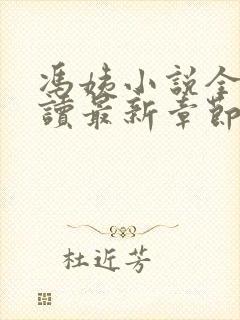 馮姨小說全
讀最新章節
杜近芳